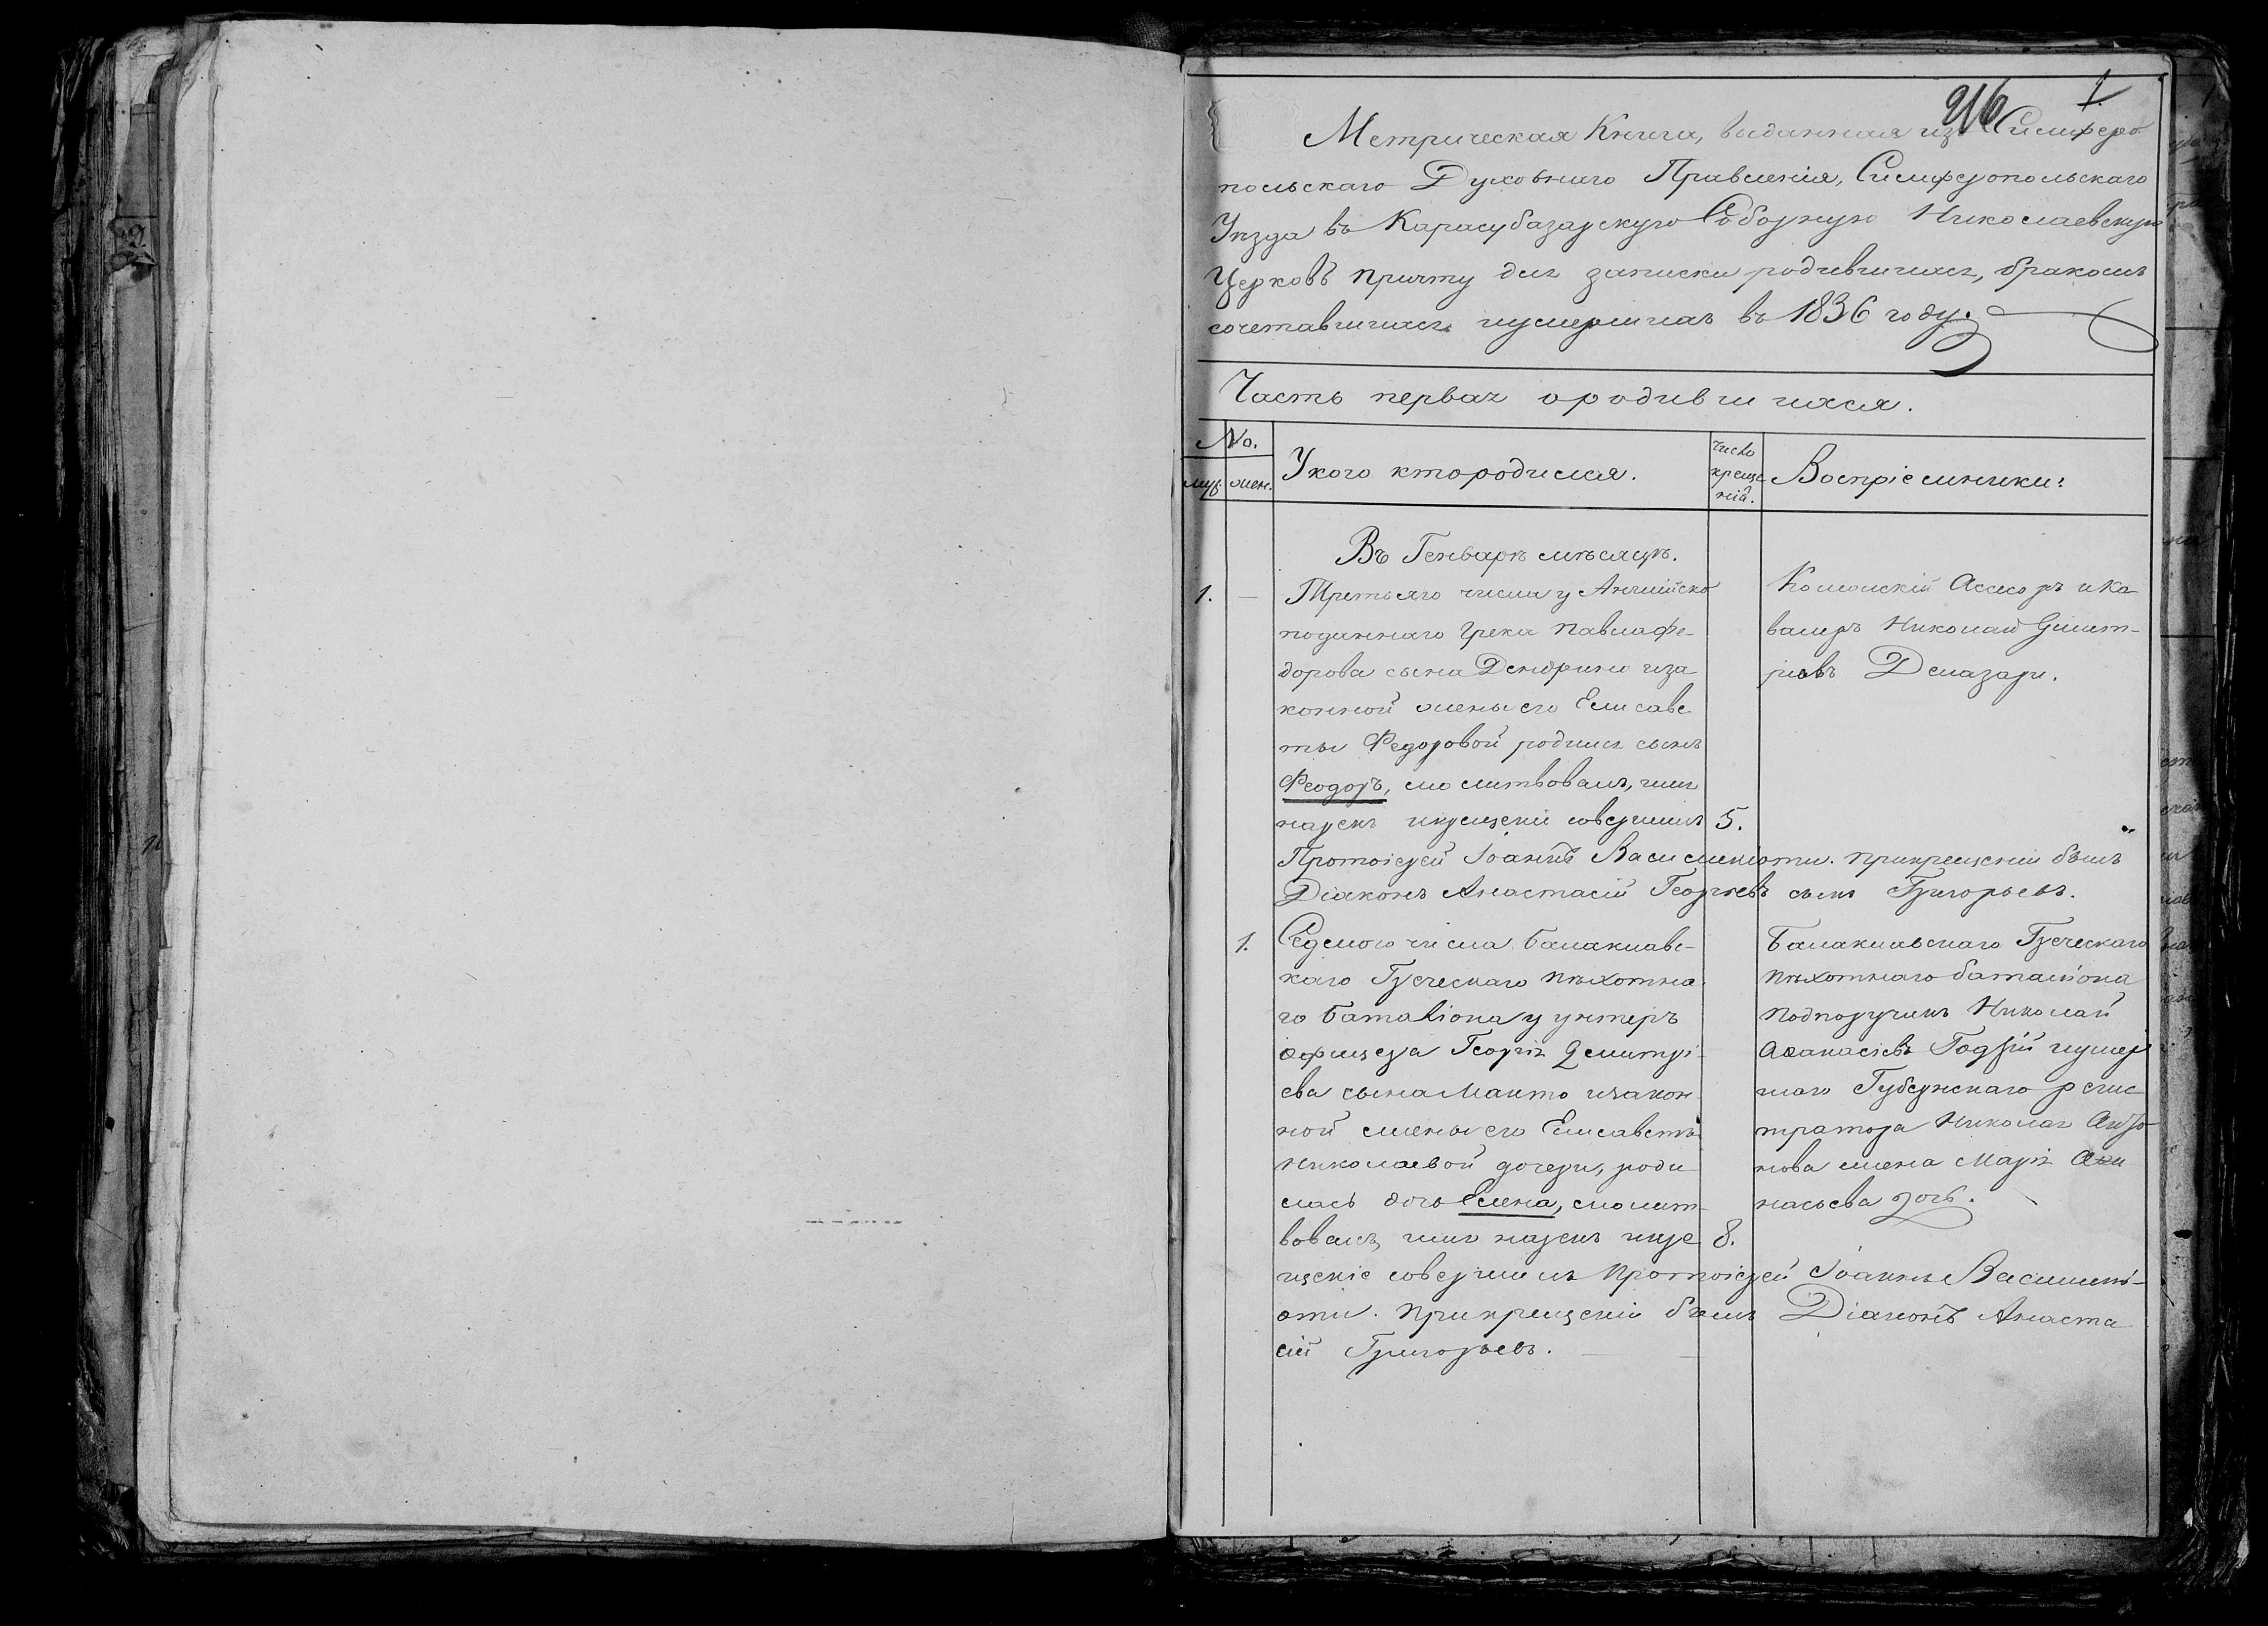 216 1.
Метрическая Книга, выданная изъ Симферо
польскаго Духовнаго Правленія, Симферопольскаго
Уѣзда въ Карасубазарскую Соборную Николаевскую
Церковь причту для записки родившихся, бракомъ
сочетавшихся иумершихъ въ 1836 году.
Часть первая ородившихся.
No.
муж. жен.
Укого ктородился.
Число
креще
ній.
Воспріемники:
Въ Генварѣ мѣсяцѣ.
1. —
Третьяго числа у Англійско
подданнаго Грека Павлафе-
дорова сына Дендрино иза
конной жены его Елисаве
ты Федоровой родился сынъ
Феодоръ, молитвовалъ, имя
нарекъ икрещеніе совершилъ 5.
Протоіерей Іоаннъ Василькіоти. прикрещеніи былъ
Діаконъ Анастасій Георгіевъ сынъ Григорьевъ.
Колежскій Асесоръ иКа
валеръ Николай Димит-
ріевъ Делазари.
1.
Седмого числа Балаклавс-
каго Греческаго пѣхотна
го Баталіона у унтеръ
офицера Георгія Димитрі-
ева сына Манто изакон-
ной жены его Елисаветы
Николаевой дочери, роди
лась дочь Елена, молит-
вовалъ, имя нарекъ икре 8.
щеніе совершилъ Протоіерей Іоаннъ Василькі-
оти. Прикрещеніи былъ Діаконъ Анаста
сій Григорьевъ.
Балаклавскаго Греческаго
пѣхотнаго баталіона
Подпоручикъ Николай
Афанасіевъ иумер
шаго Губернскаго регис
тратора Николая
нова жена Марія
насьева дочь.